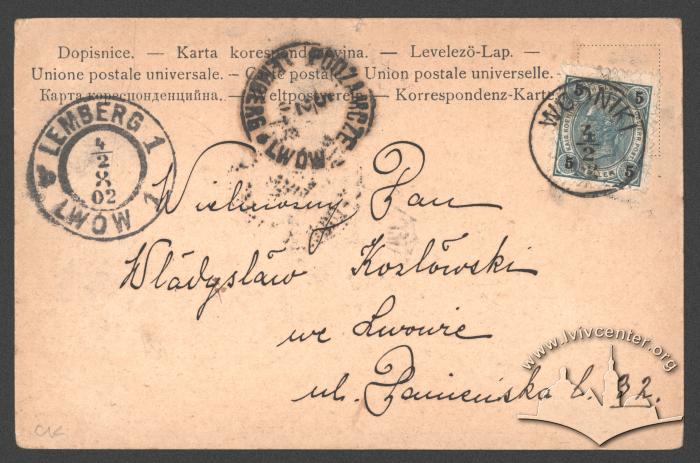 Dopisnice. — Karta korespondencyjna. — Levelező-Lap. —
Unione postale universale. — Carte postale. Union postale universelle. —
Карта кореспонденцийна. — Weltpostverein. — Korrespondenz-Karte
LEMBERG 1
4/2
X
02
LWÓW 1
LEMBERG PODZAMCZE
LWÓW
WINNIKI
5 5
5 5
Wielmożny Pan
Władysław Kozłowski
we Lwowie
ul. l. 32.
www.lvivcenter.org